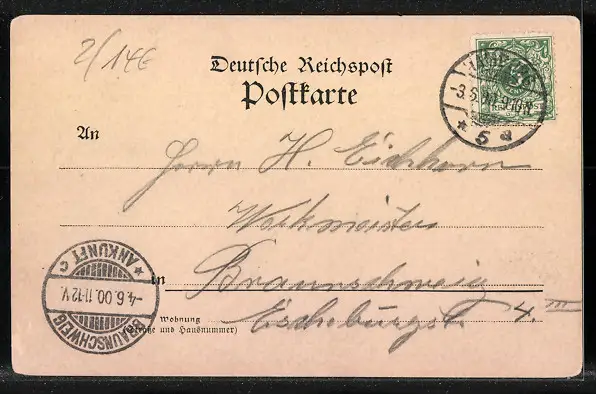 2/14E
Deutsche Reichspost
Postkarte
-3.6.00.
* 5 a
An
Herrn H. Eichhorn
Werkmeister
in Braunschweig
Wohnung
(Straße und Hausnummer)
4. III
* ANKUNFT C
-4.6.00.11-12V.
BRAUNSCHWEIG